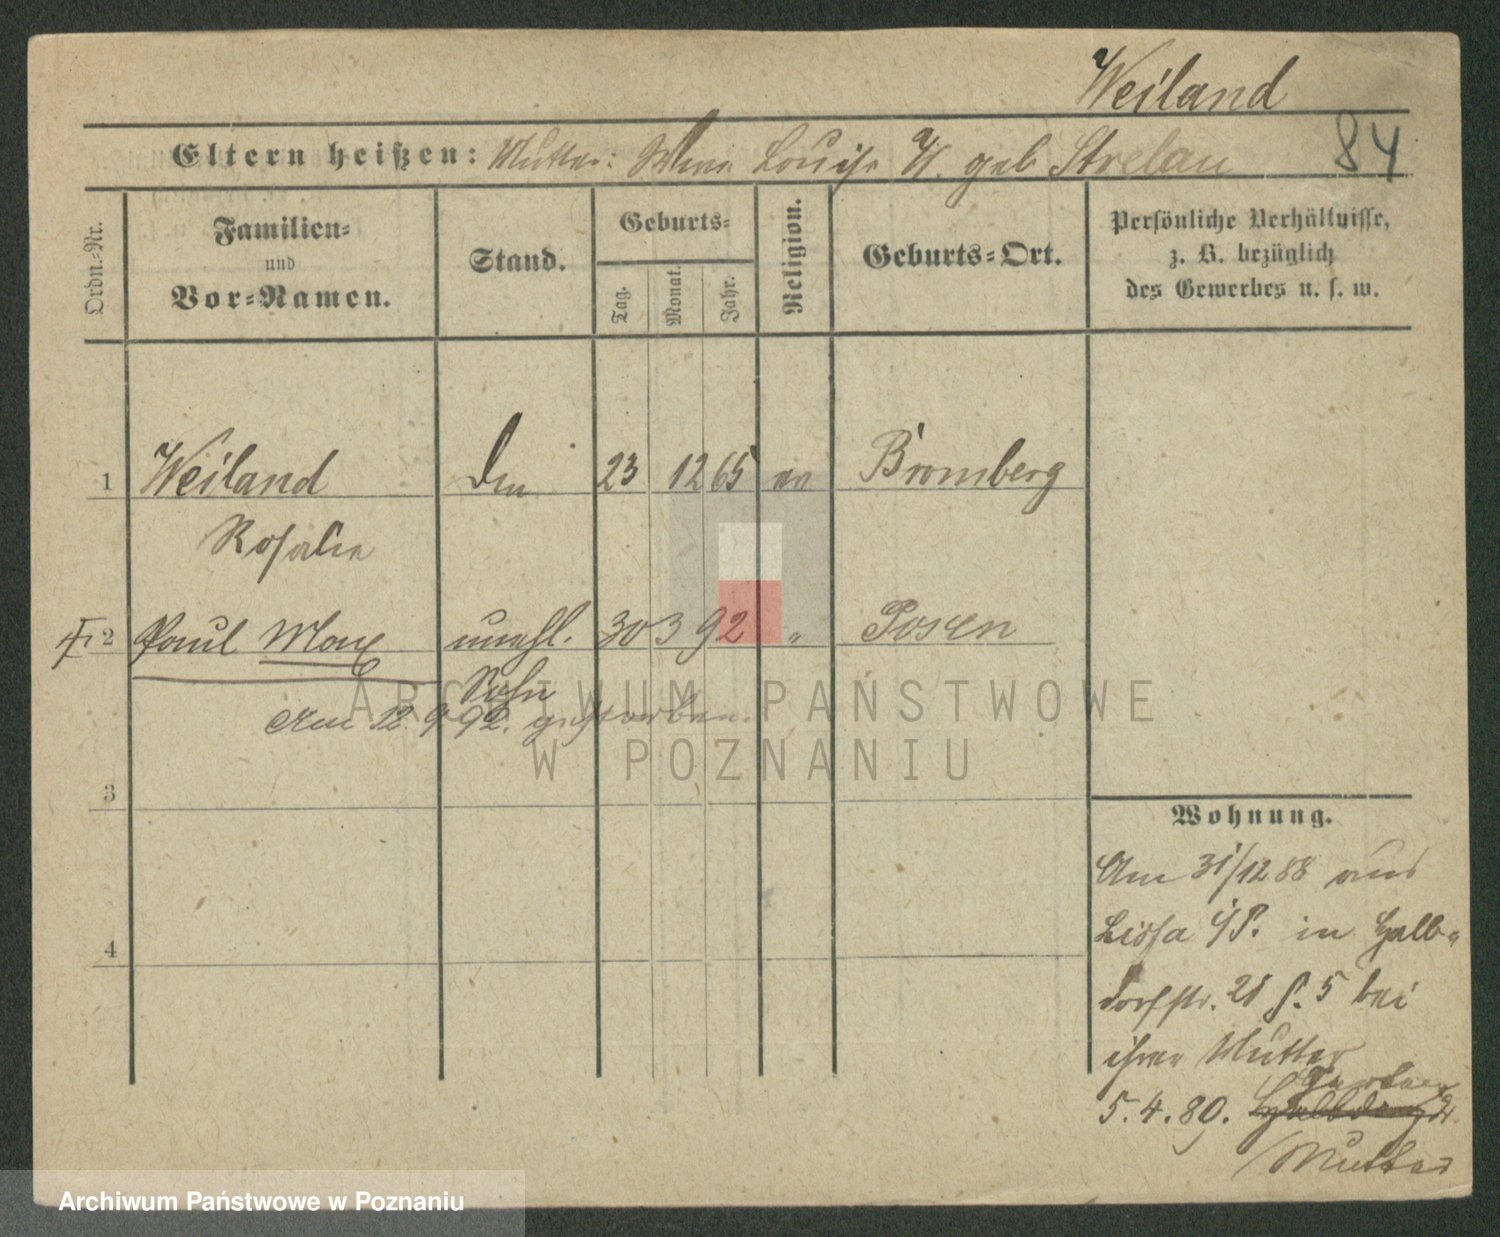 Weiland
84
Eltern heißen: Mutter: Wwe Louise W. geb Strelau
Ordn.-Nr.
Familien- und Vor-Namen.
Stand.
Geburts-
Tag.
Monat.
Jahr.
Religion.
Geburts-Ort.
Persönliche Verhältnisse,
z. B. bezüglich
des Gewerbes u. s. w.
1 Weiland 23 12 65 ev Bromberg
Rosalie
2 Paul Max unehl. 30 3 92 " Posen
Sohn
Am 22. 9 92. gestorben.
3
4
Wohnung.
Am 31/12 88 aus
Lissa i/P. in Halb-
dorfstr. 21 5 bei
ihrer Mutter
5. 4. 89. Halbdorfstr
Mutter
ARCHIWUM PAŃSTWOWE
W POZNANIU
Archiwum Państwowe w Poznaniu